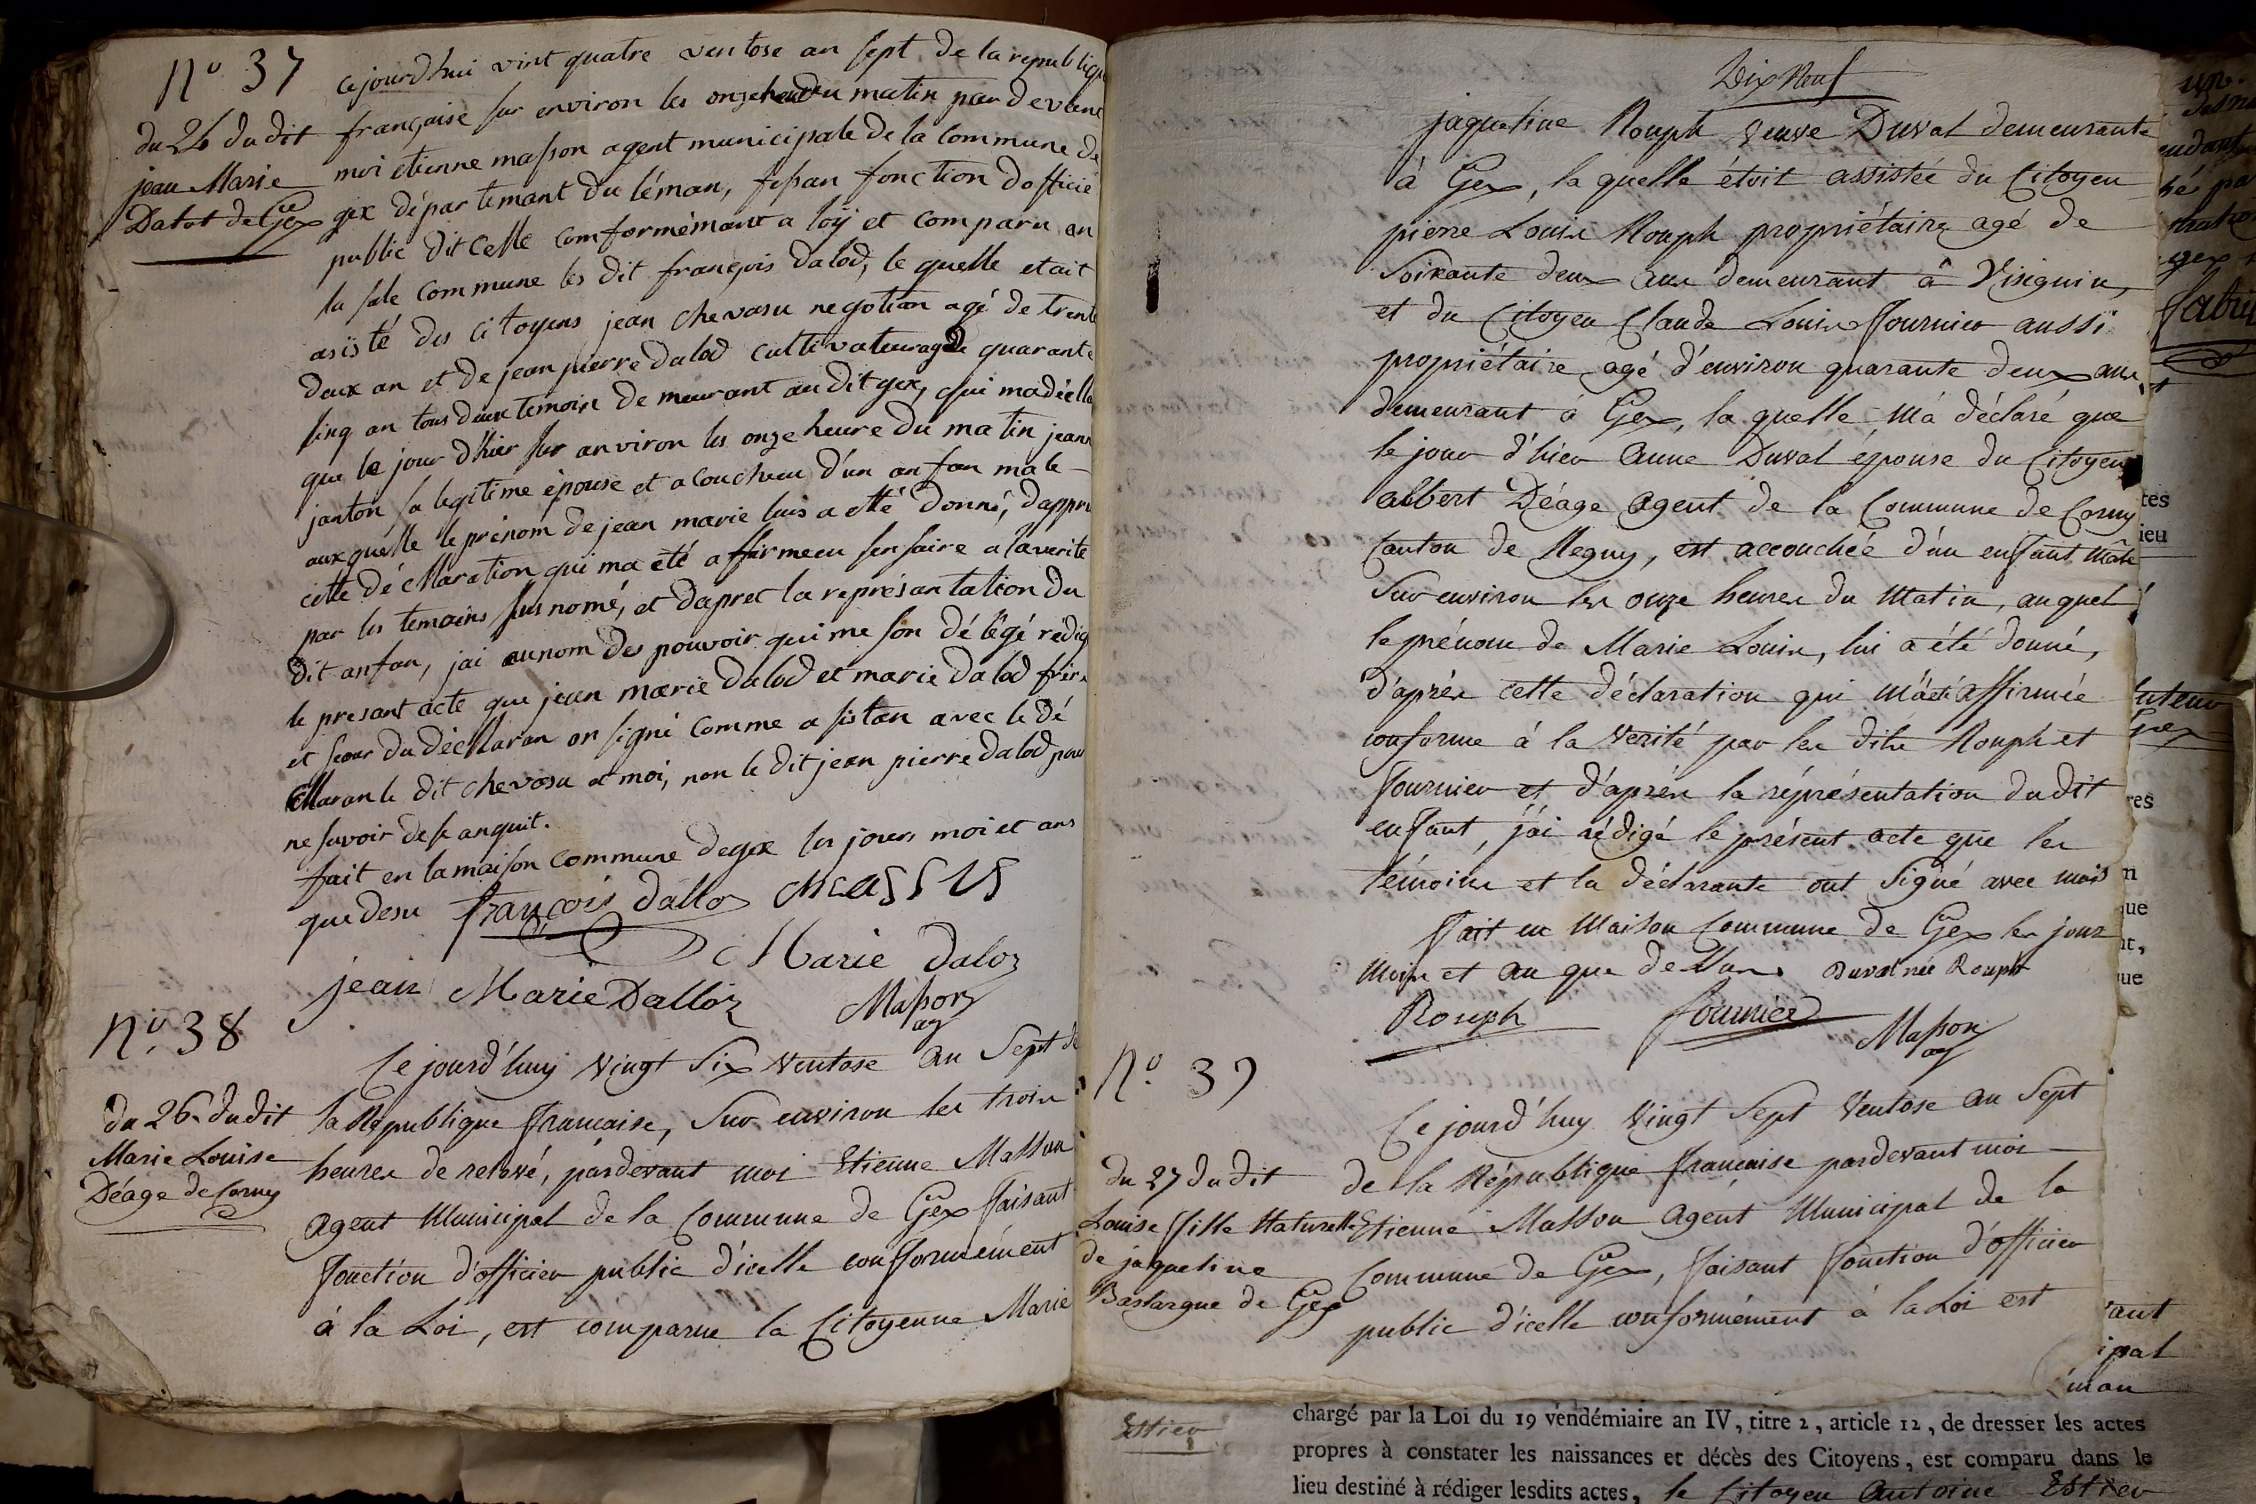 N.º 37
du 26 du dit
jean Marie
Dalot de Gex
cejourdhui vint quatre ventose an sept de la republique
française sur environ les onze heure du matin par devant
moi etienne masson agent municipale de la commune de
gex départemant du léman, fesan fonction dofficié
public dit celle comformémant a loÿ et comparu an
la sale commune les dit françois dalod, le quelle etait
asisté des citoyens jean chevasu negotian agé de trente
deux an et de jean pierre dalod cultivateur agé de quarante
sinq an tous deux temoin demeurant audit gex, qui ma déclla
que le jour d'hier sur anviron les onze heure du matin jeann
janton sa legitime épouse et acoucheu d'un anfan male
auxquelle le prénom de jean marie luis a etté donné, dappre
citte décllaration qui ma été affirmeeu sinsaire a laverité
par les temoins susnomé, et dapret la représantation du
dit anfan, jai aunom des pouvoir qui me son délégé rédig
le presant acte que jean marie dalod et marie dalod frère
et seour du décllaran on signé comme asistan avec le dé
cllaran le dit chevasu et moi, non le dit jean pierre dalod pour
ne savoir de se anquit.
fait en la maison commune de gex les jours moi et ans
que desu françois dalloz chevassus
Marie daloz
jean Marie Dalloz Masson
ag
N.º 38
du 26 du dit
Marie Louise
Déage de Corny
Ce jourd'huy vingt Six Ventose an Sept de
la République française, Sur environ les trois
heures de relevé, pardevant moi Etienne Masson
agent Municipal de la Commune de Gex faisant
fonction d'officier public d'icelle conformément
à la Loi, est comparue la Citoyenne Marie
Dix Neuf
jaqueline Rouph veuve Duval demeurante
à Gex, la quelle étoit assistée du Citoyen
pierre Louis Rouph propriétaire agé de
Soixante deux ans demeurant à Visignin,
et du Citoyen Claude Louis fournier aussi
propriétaire agé d'environ quarante deux ans
demeurant à Gex, la quelle M'a déclaré que
le jour d'hier Anne Duval épouse du Citoyen
albert Déage Agent de la Commune de Corny
Canton de Regny, est accouchée d'un enfant Mâle
Sur environ les onze heures du Matin, auquel
le prénom de Marie Louis, lui a été donné,
d'après cette déclaration qui M'a été affirmée
conforme à la Verité par les dits Rouph et
fournier et d'après la réprésentation du dit
enfant, j'ai rédigé le présent acte que les
témoins et la déclarante ont Signé avec mois
fait en Maison Commune de Gex les jour
Mois et an que dessus Duval née Rouph
Rouph fournier Masson
ag
N.º 39
du 27 du dit
Louise fille Naturelle
de jaqueline
Bastargue de Gex
Ce jourd'huy Vingt Sept Ventose an Sept
de la République française pardevant moi
Etienne Masson Agent Municipal de la
Commune de Gex, faisant fonction d'officier
public d'icelle conformément à la Loi est
tes
ieu
res
ue
nt,
que
ipal
Léman
Estier
chargé par la Loi du 19 vendémiaire an IV, titre 2, article 12, de dresser les actes
propres à constater les naissances et décès des Citoyens, est comparu dans le
lieu destiné à rédiger lesdits actes, le Citoyen Antoine Estier